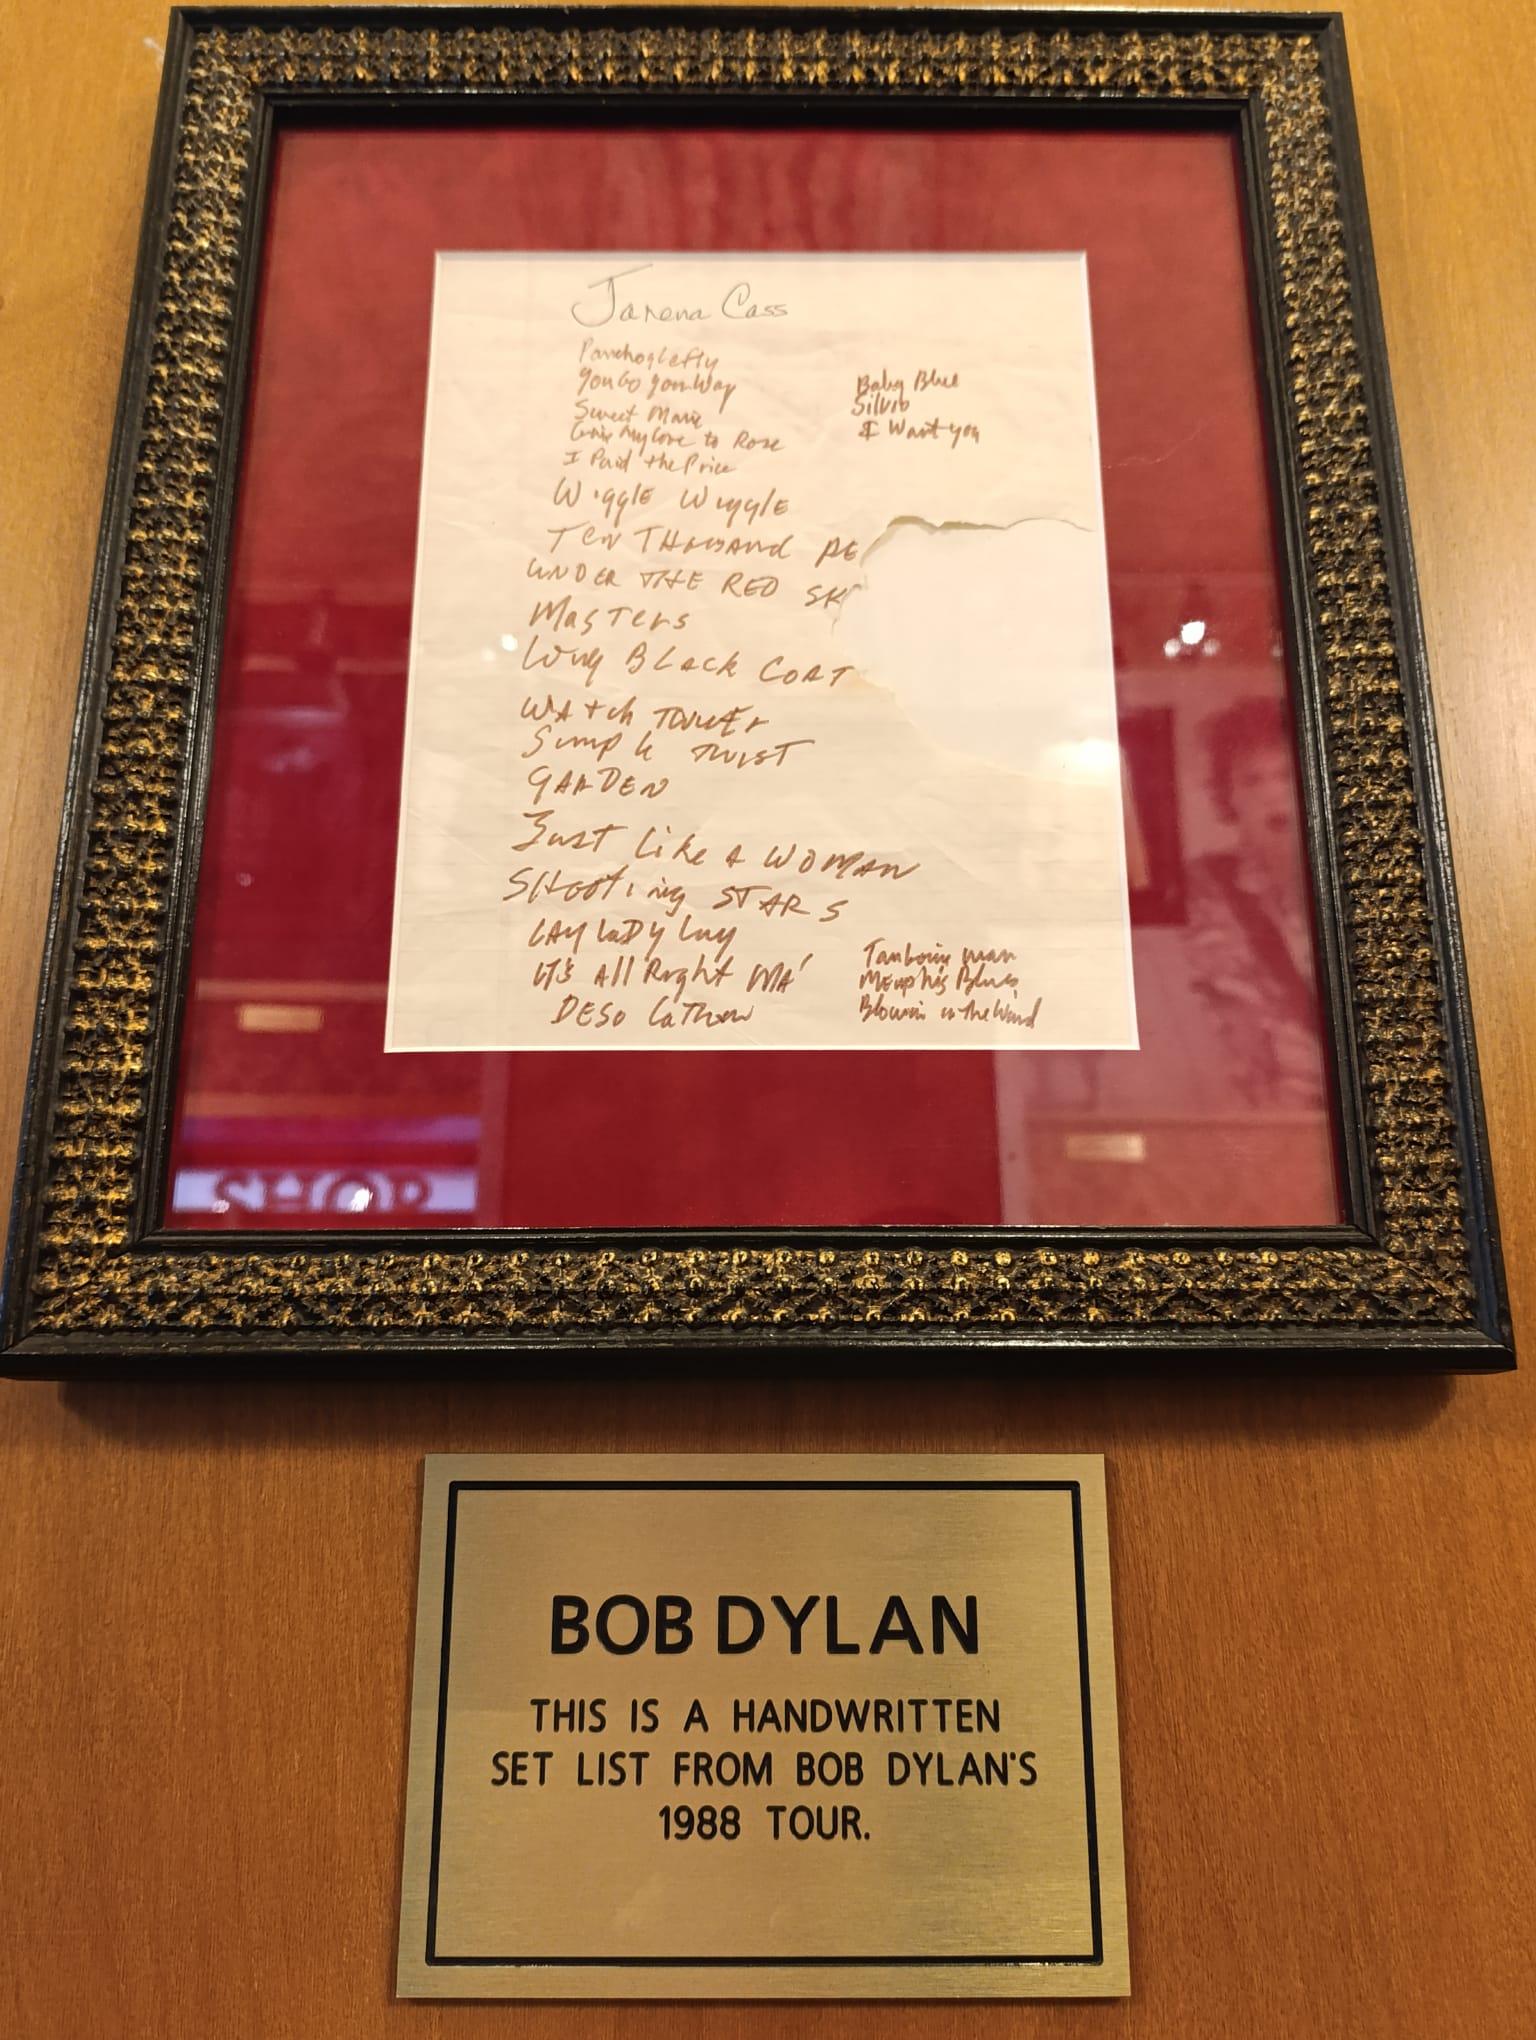 Janena Cass
Pancho & Lefty
You Go Your Way
Sweet Marie
Give My Love to Rose
I Paid the Price
Wiggle Wiggle
TEN THOUSAND
UNDER THE RED SK
MasTers
Long BLack COAT
WATch TOWER
Simple TWIST
GARDEN
Just Like A WOMAN
SHooTing STARS
LAy LaDy Lay
IT's All Right MA'
DESo LaTion
Baby Blue
Silvio
I Want you
Tambourine man
Memphis Blues
Blowin in the Wind
SHOP
BOB DYLAN
THIS IS A HANDWRITTEN
SET LIST FROM BOB DYLAN'S
1988 TOUR.